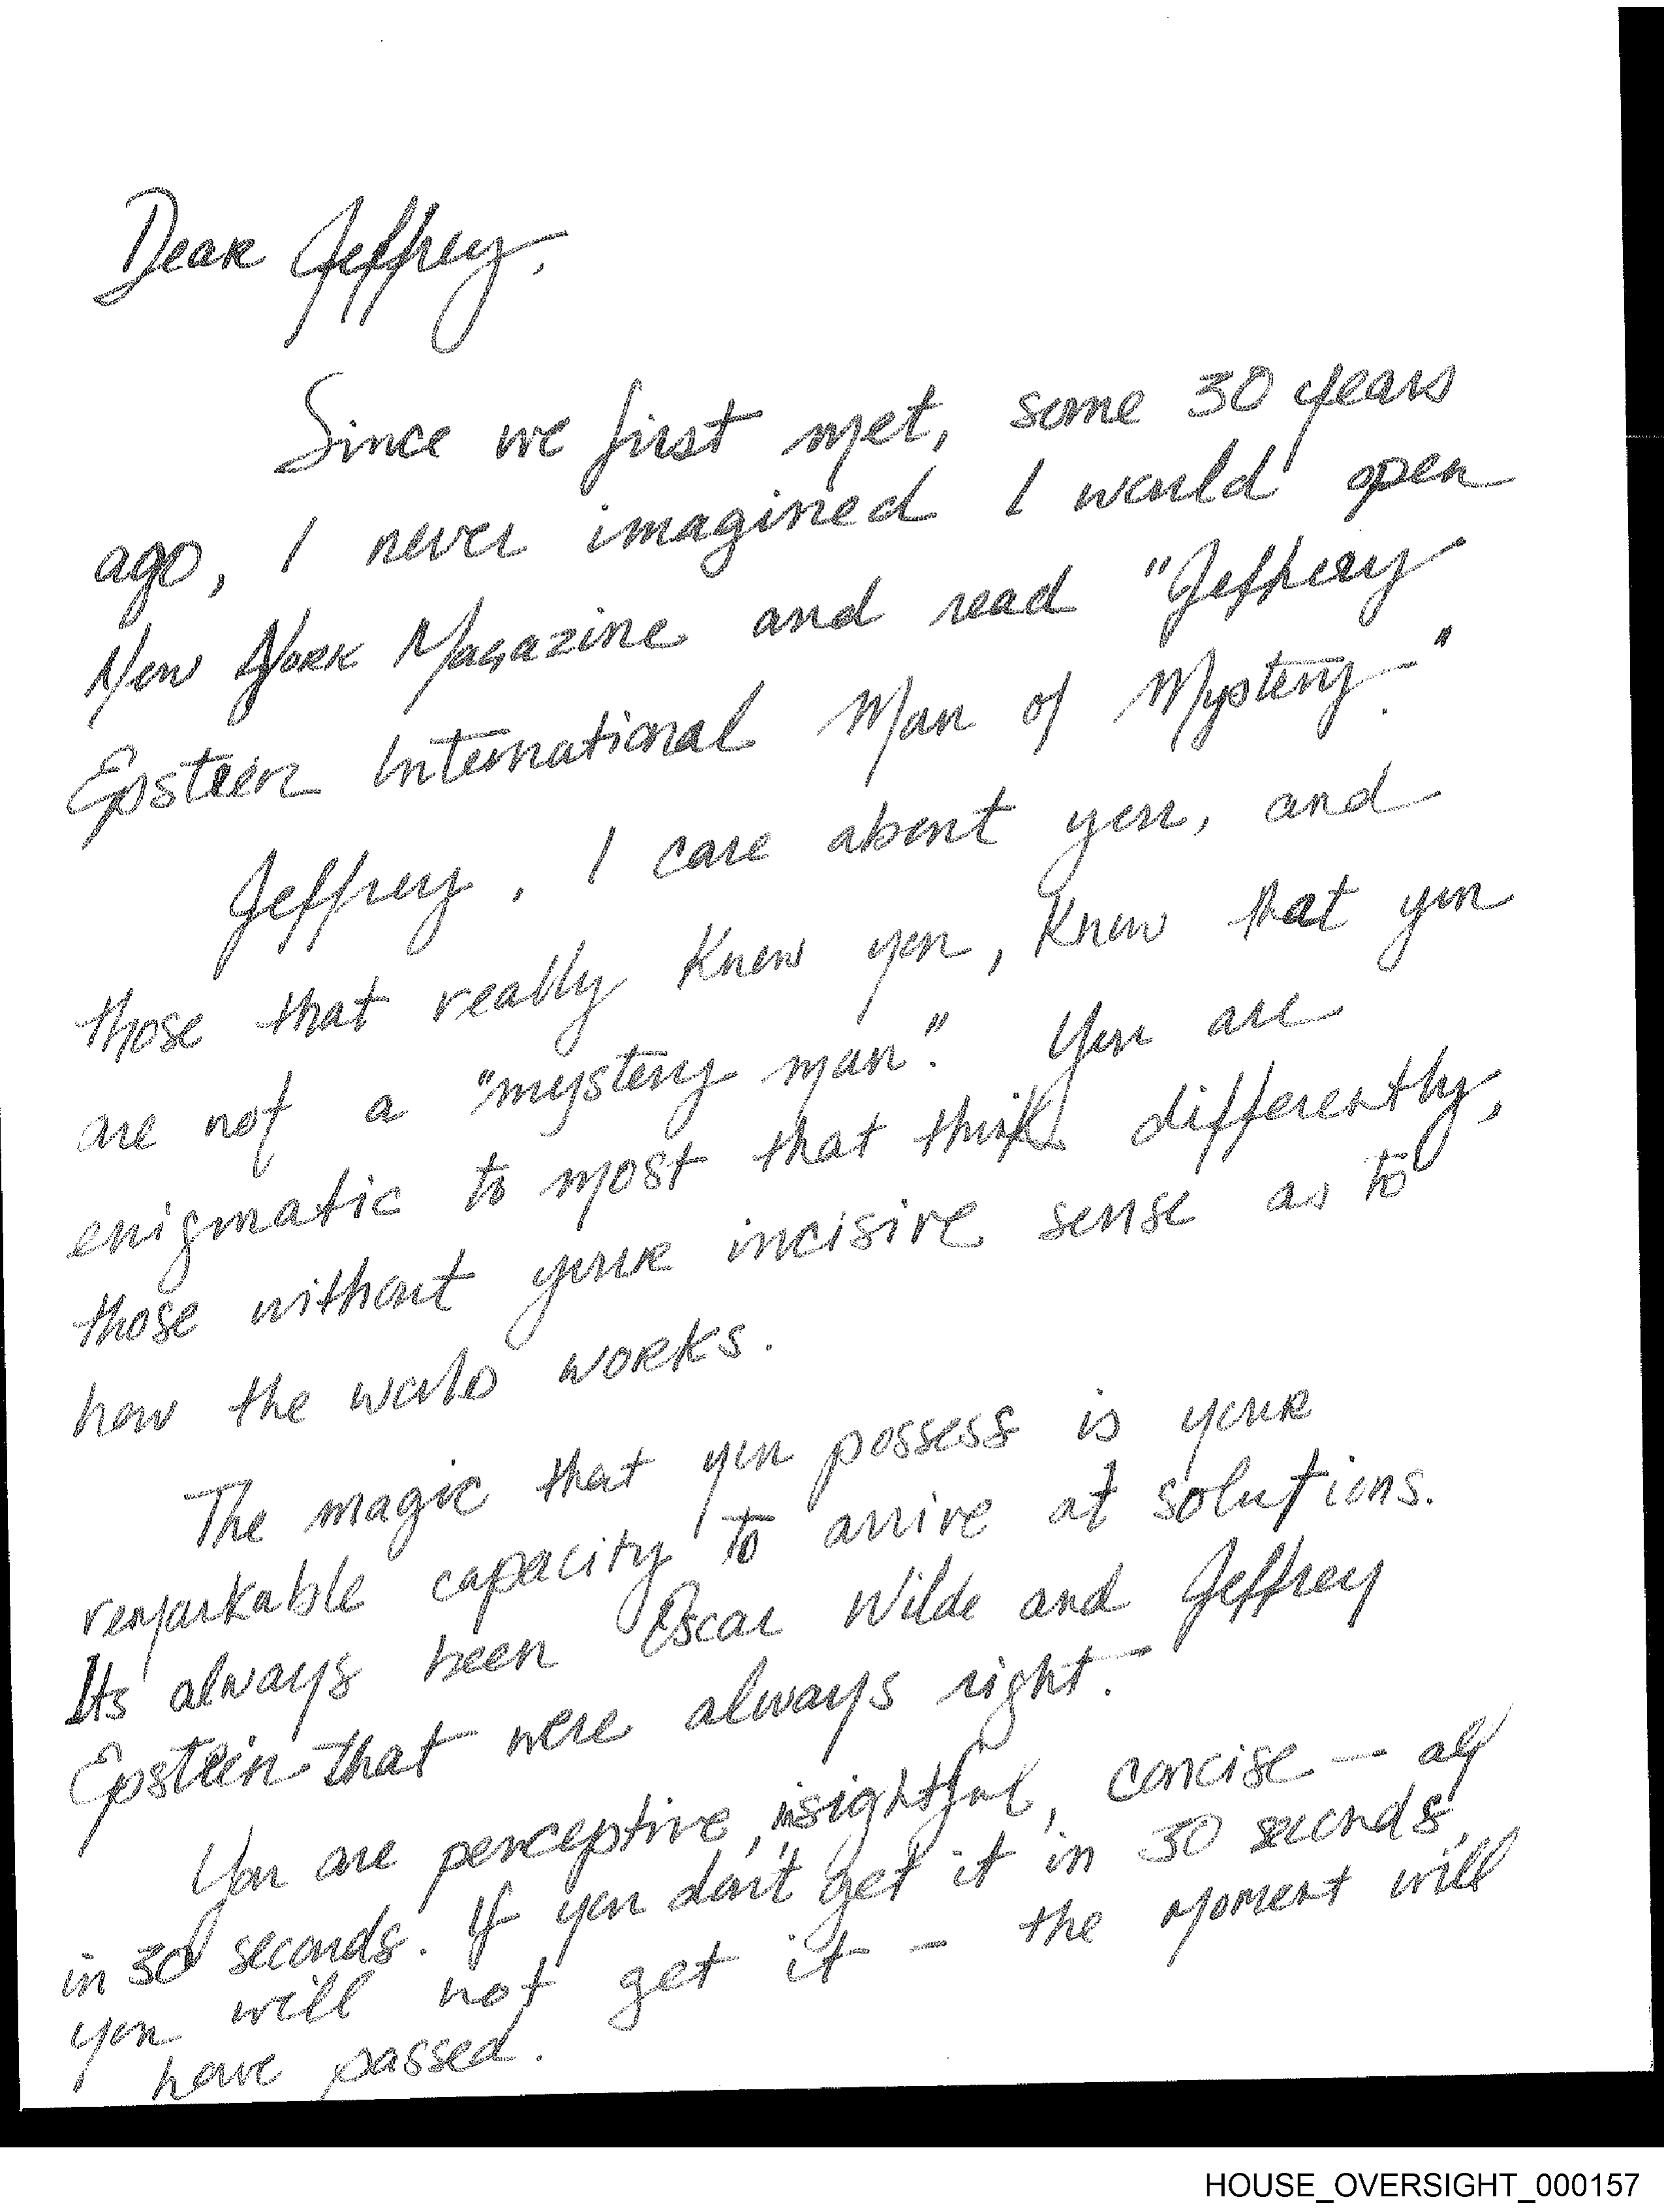 Dear Jeffrey,
Since we first met, some 30 years
ago, I never imagined I would open
New York Magazine and read "Jeffrey
Epstein International Man of Mystery."
Jeffrey, I care about you, and
those that really know you, know that you
are not a "mystery man." You are
enigmatic to most that think differently,
those without your incisive sense as to
how the world works.
The magic that you possess is your
remarkable capacity to arrive at solutions.
Its always been Oscar Wilde and Jeffrey
Epstein that were always right.
You are perceptive, insightful, concise — all
in 30 seconds. If you don't get it in 30 seconds,
you will not get it - the moment will
have passed.
HOUSE_OVERSIGHT_000157